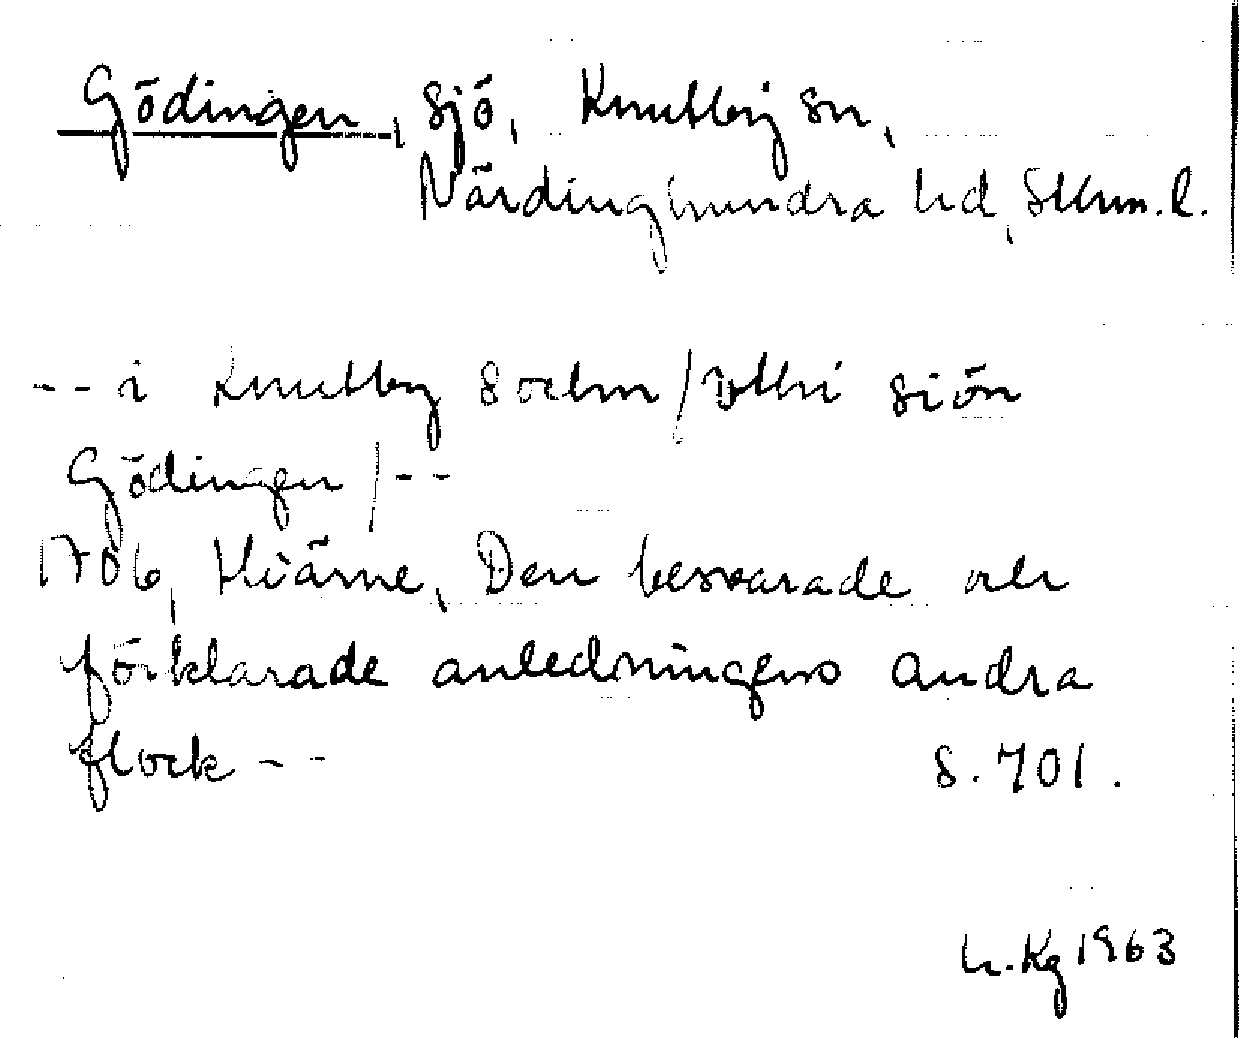 Gödingen, sjö, Knutby sn,
Närdinghundra hd, Sthm. l.
-- i Knutby Sochn / vthi siön
Gödingen / --
1706, Hiärne, Den besvarade och
förklarade anledningens andra
flock -- S. 701.
h. Kg 1963